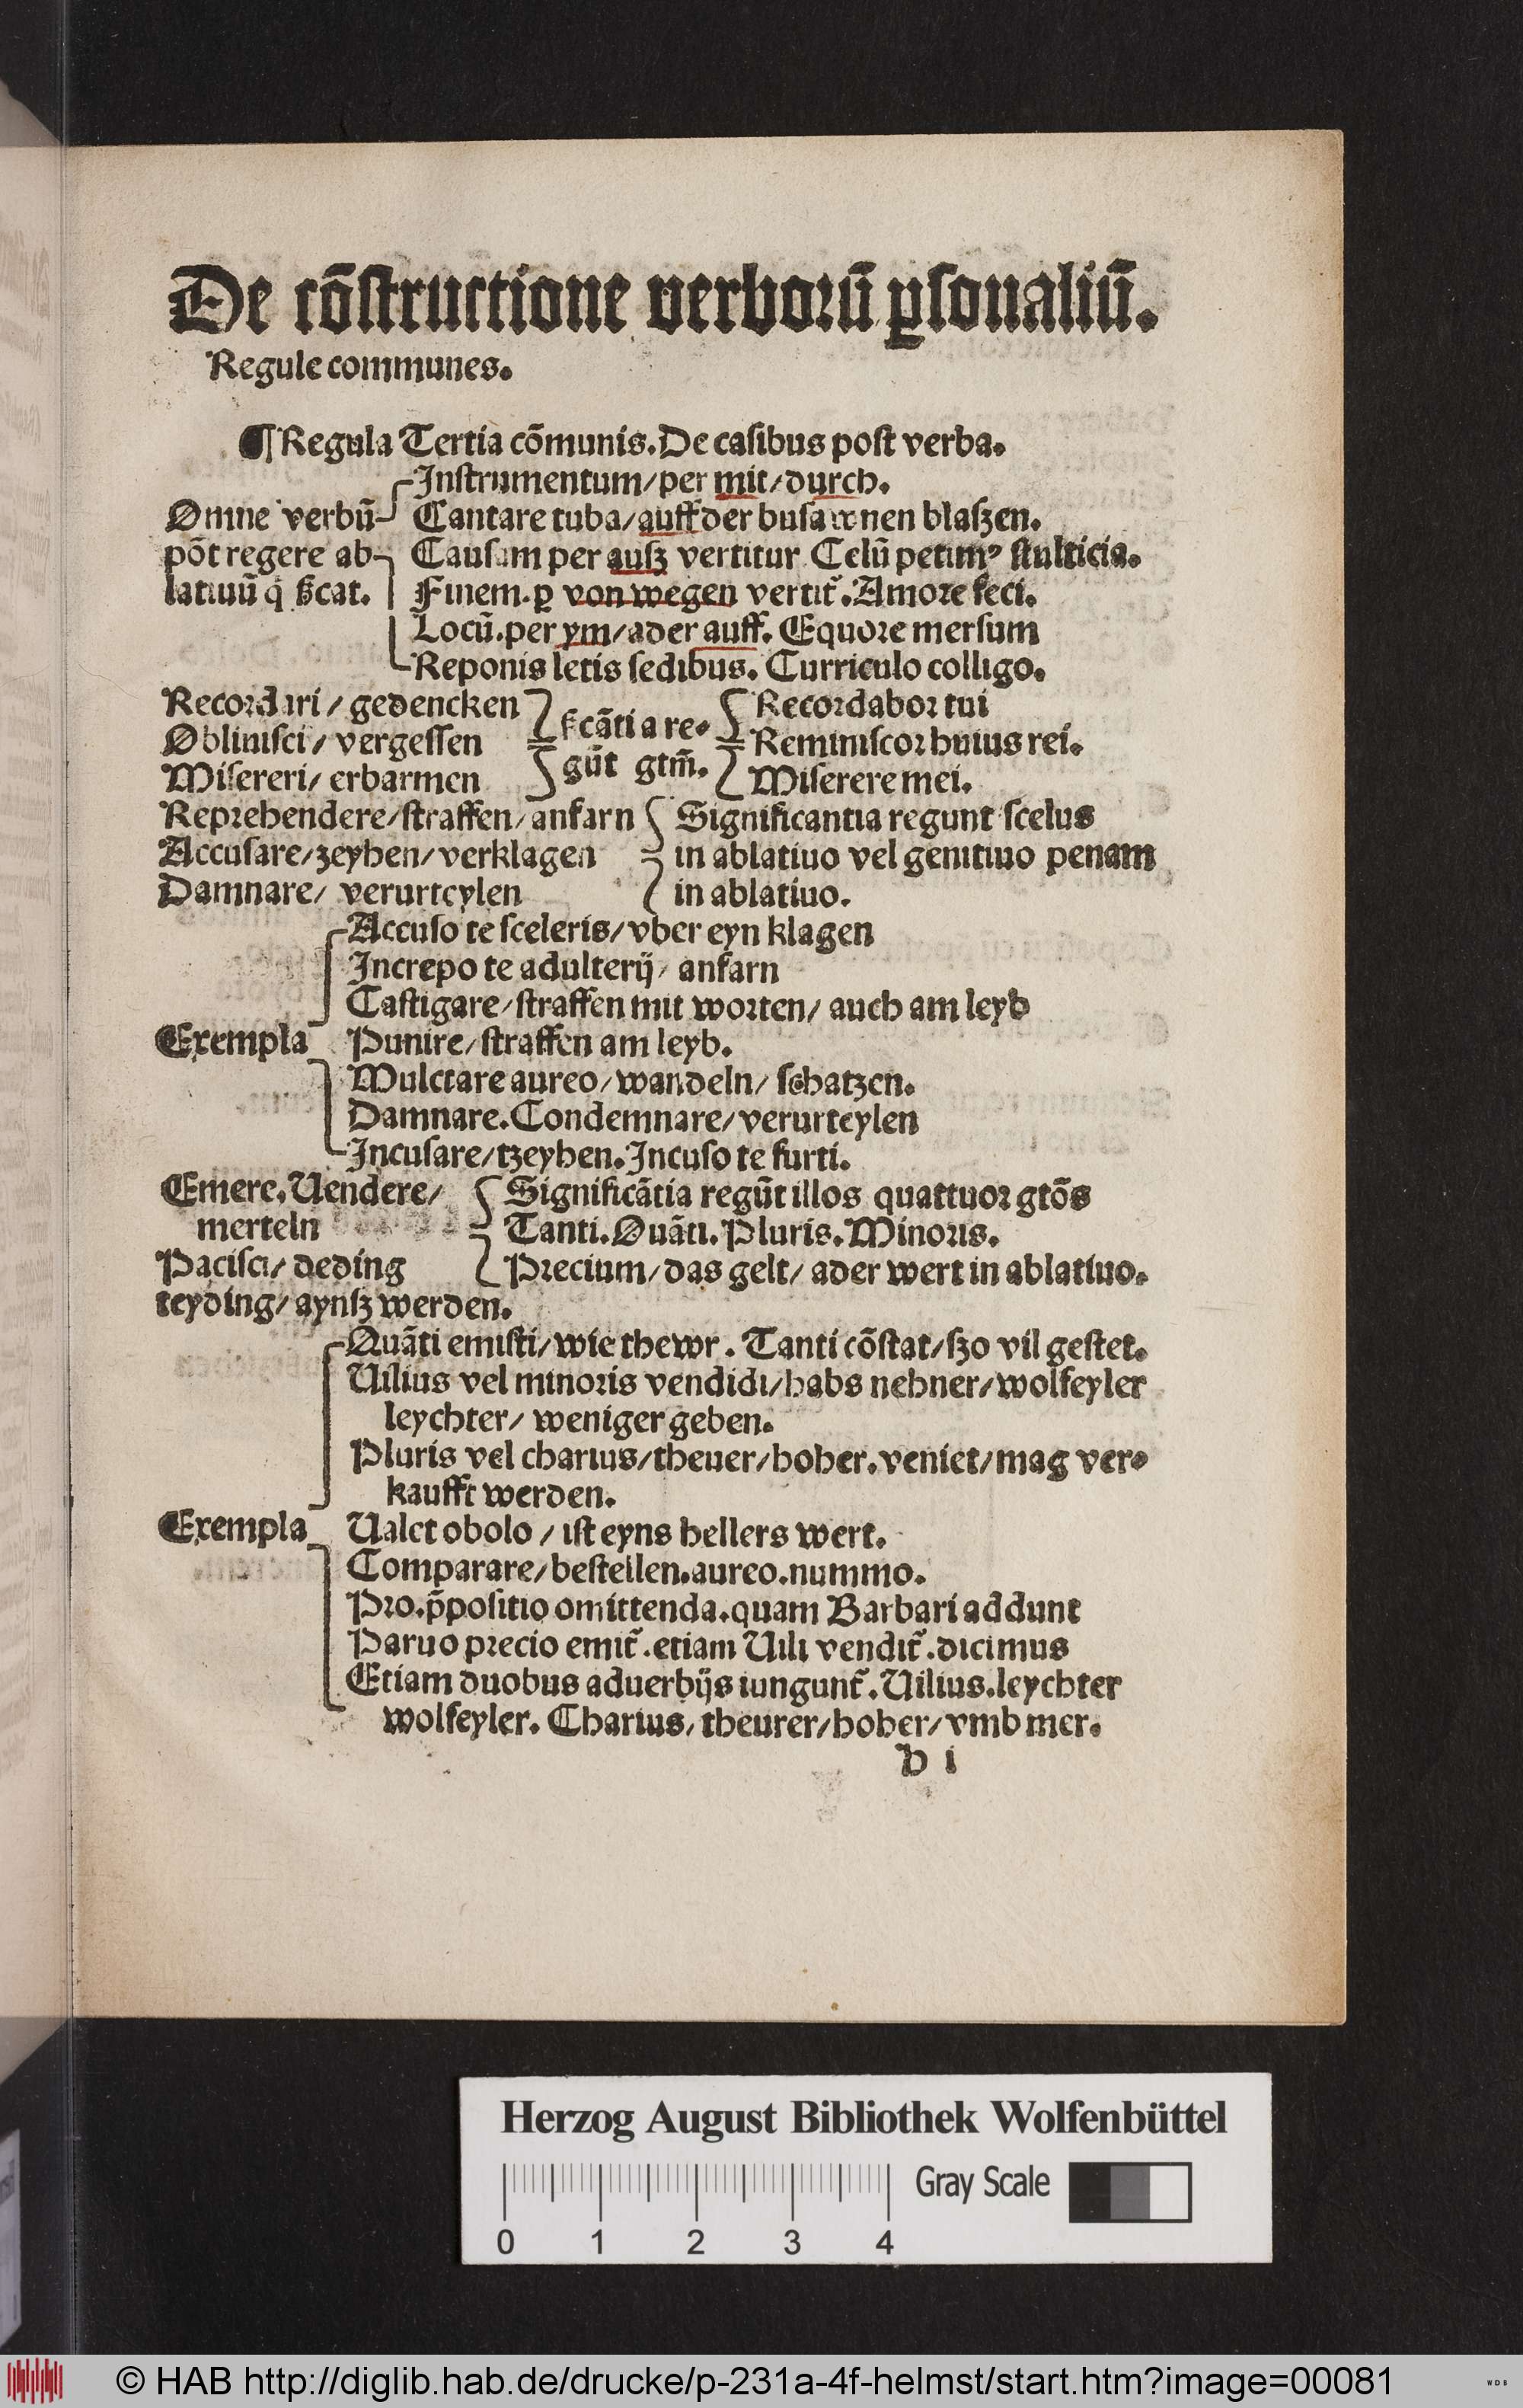 De cõstructione verborũ ꝑsonaliũ.
Regule communes.
¶ Regula Tertia cõmunis. De casibus post verba.
Instrumentum/ per mit/ durch.
Omne verbũ Cantare tuba/ auff der busawnen blaßen.
põt regere ab- Causam per auß vertitur Celũ petimꝰ stulticia.
latiuũ q̃ ẞcat. Finem. ꝑ von wegen vertit̃. Amore feci.
Locũ. per ym/ ader auff. Equore mersum
Reponis letis sedibus. Curriculo colligo.
Recordari/ gedencken ẞcãtia re- Recordabor tui
Obliuisci/ vergessen Reminiscor huius rei.
Misereri/ erbarmen gũt gtm̃. Miserere mei.
Reprehendere/ straffen/ anfarn Significantia regunt scelus
Accusare/ zeyhen/ verklagen in ablatiuo vel genitiuo penam
Damnare/ verurteylen in ablatiuo.
Accuso te sceleris/ vber eyn klagen
Increpo te adulterij/ anfarn
Castigare/ straffen mit worten/ auch am leyb
Exempla Punire/ straffen am leyb.
Mulctare aureo/ wandeln/ schatzen.
Damnare. Condemnare/ verurteylen
Incusare/ tzeyhen. Incuso te furti.
Emere. Uendere/ Significãtia regũt illos quattuor gtõs
merteln Tanti. Quãti. Pluris. Minoris.
Pacisci/ deding Precium/ das gelt/ ader wert in ablatiuo.
teyding/ aynß werden.
Quãti emisti/ wie thewr. Tanti cõstat/ ßo vil gestet.
Uilius vel minoris vendidi/ habs nehner/ wolfeyler
leychter/ weniger geben.
Pluris vel charius/ theuer/ hoher. veniet/ mag ver-
kaufft werden.
Exempla Ualet obolo/ ist eyns hellers wert.
Comparare/ bestellen. aureo. nummo.
Pro. p̃positio omittenda. quam Barbari addunt
Paruo precio emit̃. etiam Uili vendit̃. dicimus
Etiam duobus aduerbijs iungunt̃. Uilius. leychter
wolfeyler. Charius/ theurer/ hoher/ vmb mer.
b i
Herzog August Bibliothek Wolfenbüttel
Gray Scale
0 1 2 3 4
© HAB http://diglib.hab.de/drucke/p-231a-4f-helmst/start.htm?image=00081
WDB